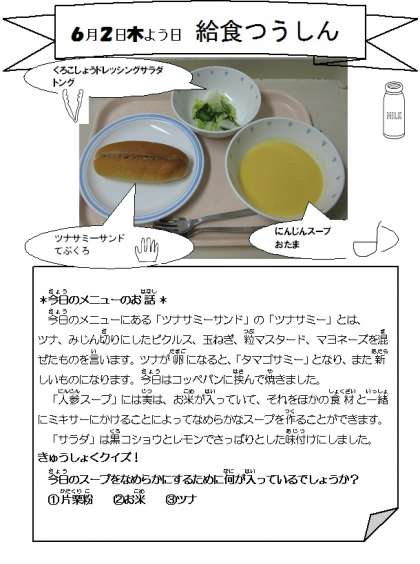 6月2日木よう日 給食つうしん
くろこしょうドレッシングサラダ
トング
MILK
ツナサミーサンド
てぶくろ
にんじんスープ
おたま
*今日のメニューのお話*
今日のメニューにある「ツナサミーサンド」の「ツナサミー」とは、
ツナ、みじん切りにしたピクルス、玉ねぎ、粒マスタード、マヨネーズを混
ぜたものを言います。ツナが卵になると、「タマゴサミー」となり、また新
しいものになります。今日はコッペパンに挟んで焼きました。
「人参スープ」には実は、お米が入っていて、それをほかの食材と一緒
にミキサーにかけることによってなめらかなスープを作ることができます。
「サラダ」は黒コショウとレモンでさっぱりとした味付けにしました。
きゅうしょくクイズ！
今日のスープをなめらかにするために何が入っているでしょうか？
①片栗粉 ②お米 ③ツナ